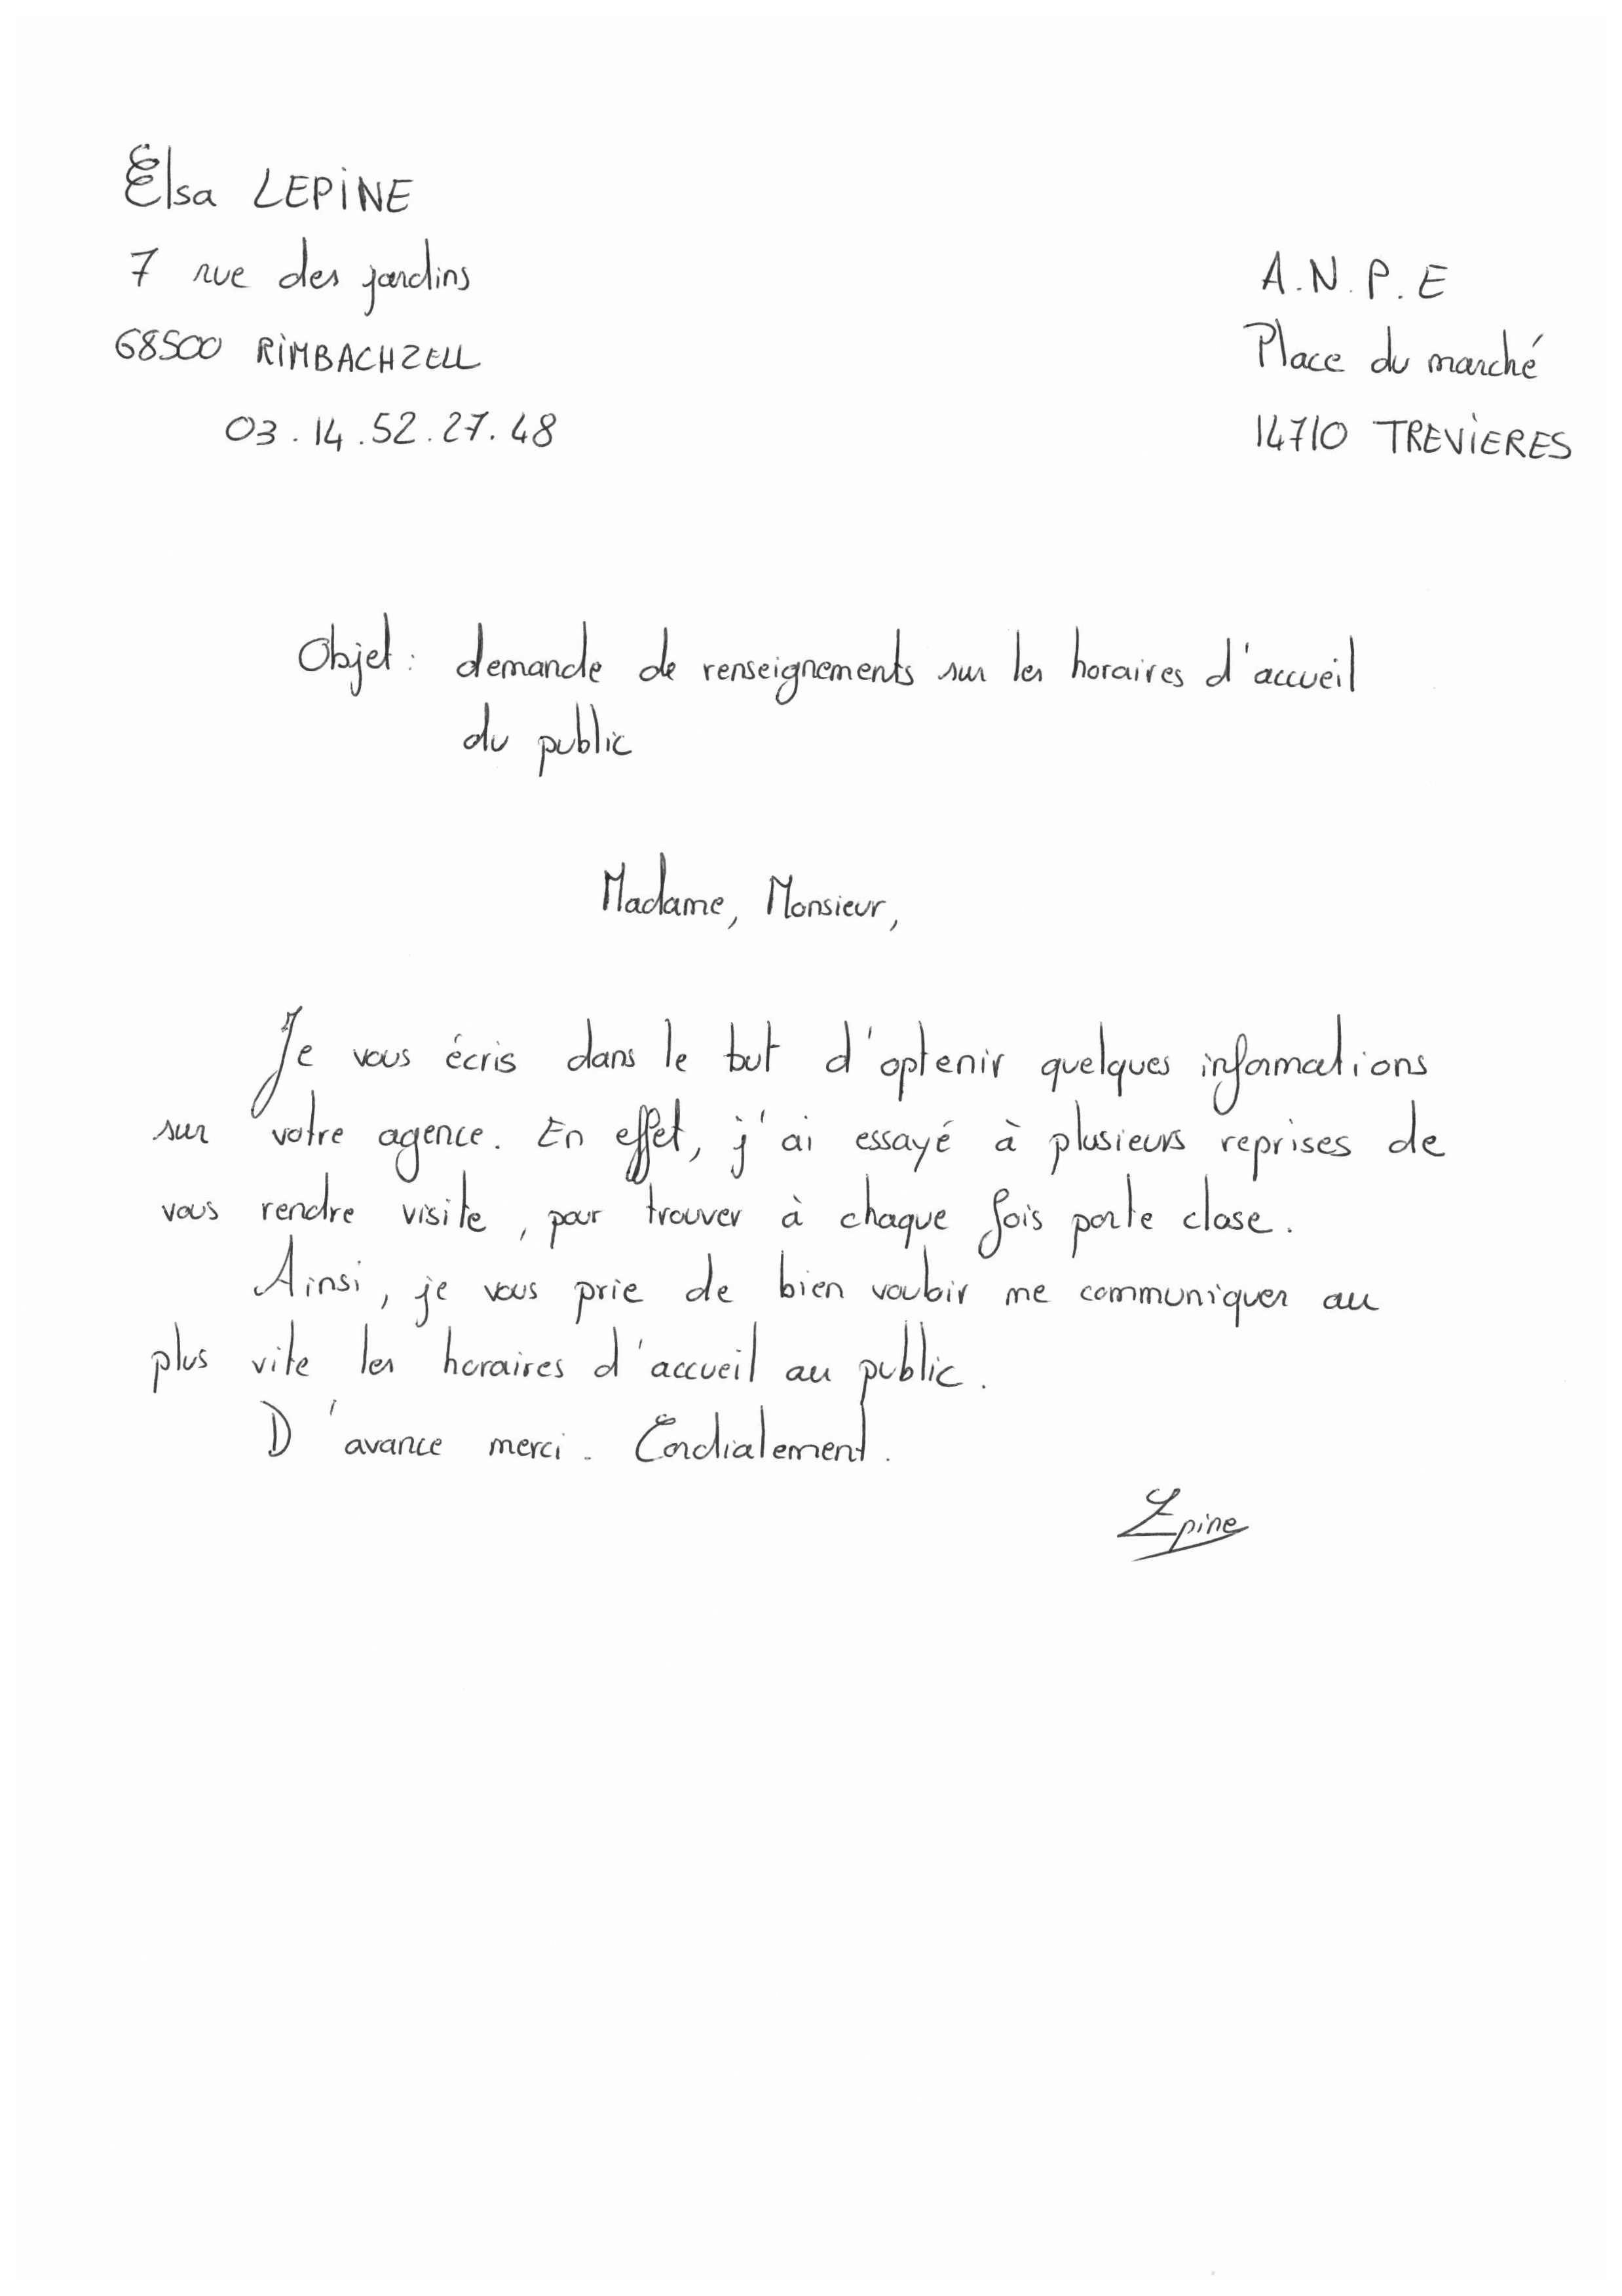 Elsa LEPINE
7 rue des jardins
68500 RIMBACHZELL
03.14.52.27.48
A.N.P.E
Place du marché
14710 TREVIERES
Objet : demande de renseignements sur les horaires d'accueil
du public
Madame, Monsieur,
Je vous écris dans le but d'optenir quelques informations
sur votre agence. En effet, j'ai essayé à plusieurs reprises de
vous rendre visite, pour trouver à chaque fois porte close.
Ainsi, je vous prie de bien vouloir me communiquer au
plus vite les horaires d'accueil au public.
D'avance merci. Cordialement.
Lepine